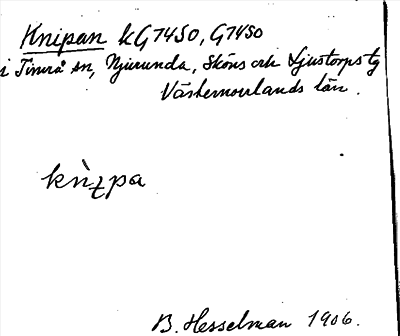 Knipan kG7450, G7450
i Timrå sn, Njurunda, Sköns och Ljustorps tg
Västernorrlands län.
knìpa
B. Hesselman 1906.